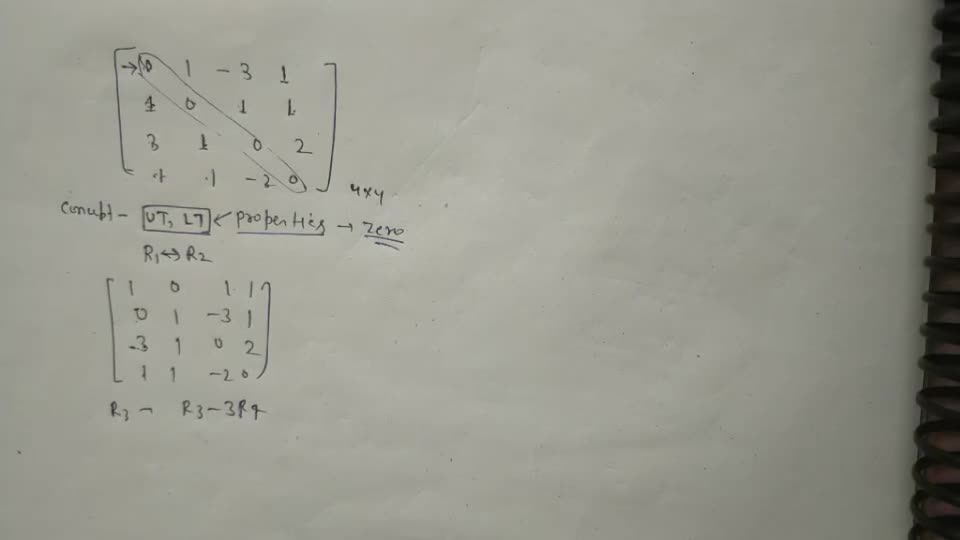 → 0 1 -3 1
1 0 1 1
3 1 0 2
1 1 -2 0
4×4
Concept - UT, LT ← properties → zero
R1↔R2
1 0 1 1
0 1 -3 1
-3 1 0 2
1 1 -2 0
R3 - R3-3R4